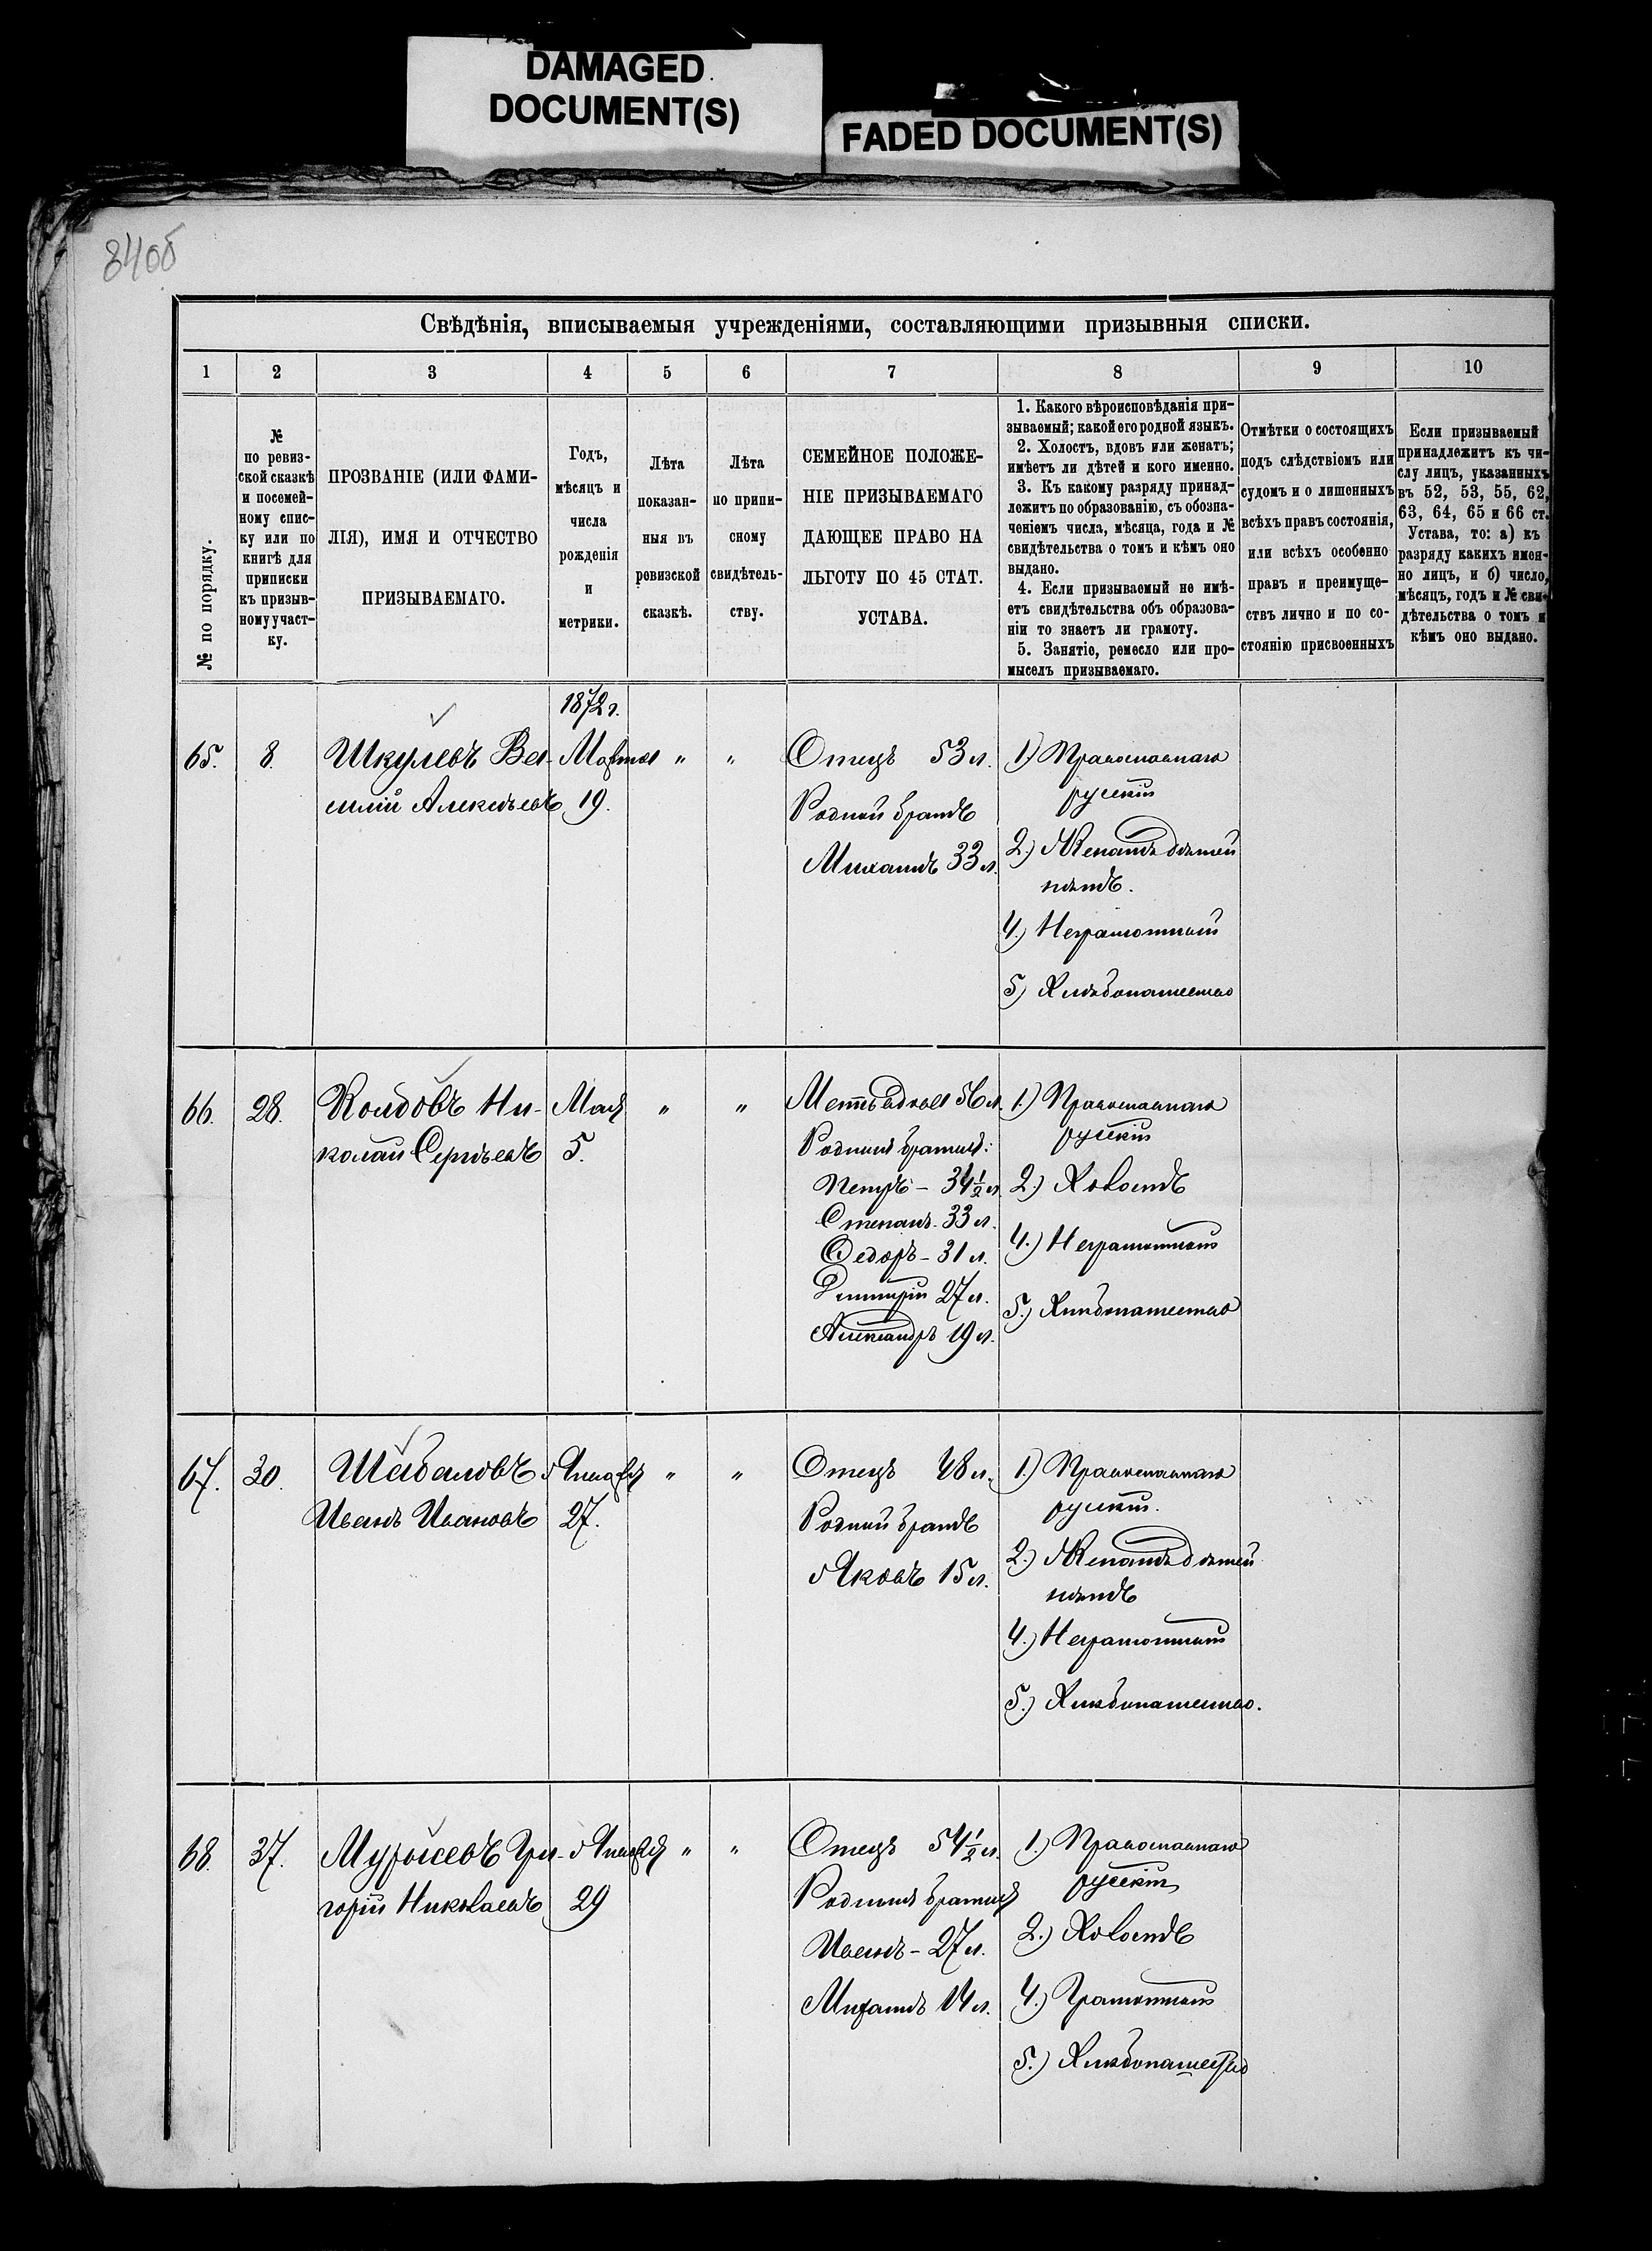 DAMAGED
DOCUMENT(S)
FADED DOCUMENT(S)
84об
Свѣдѣнія, вписываемыя учрежденіями, составляющими призывныя списки.
1 2 3 4 5 6 7 8 9 10
№ по порядку.
№
по ревиз-
ской сказкѣ
и посемей-
ному спис-
ку или по
книгѣ для
приписки
къ призыв-
ному участ-
ку.
ПРОЗВАНІЕ (ИЛИ ФАМИ-
ЛІЯ), ИМЯ И ОТЧЕСТВО
ПРИЗЫВАЕМАГО.
Годъ,
мѣсяцъ и
числа
рожденія
и
метрики.
Лѣта
показан-
ныя въ
ревизской
сказкѣ.
Лѣта
по припи-
сному
свидѣтель-
ству.
СЕМЕЙНОЕ ПОЛОЖЕ-
НІЕ ПРИЗЫВАЕМАГО
ДАЮЩЕЕ ПРАВО НА
ЛЬГОТУ ПО 45 СТАТ.
УСТАВА.
1. Какого вѣроисповѣданія при-
зываемый; какой его родной языкъ.
2. Холостъ, вдовъ или женатъ;
имѣетъ ли дѣтей и кого именно.
3. Къ какому разряду принад-
лежитъ по образованію, съ обозна-
ченіемъ числа, мѣсяца, года и №
свидѣтельства о томъ и кѣмъ оно
выдано.
4. Если призываемый не имѣ-
етъ свидѣтельства объ образова-
ніи то знаетъ ли грамоту.
5. Занятіе, ремесло или про-
мыселъ призываемаго.
Отмѣтки о состоящихъ
подъ слѣдствіемъ или
судомъ и о лишенныхъ
всѣхъ правъ состоянія,
или всѣхъ особенно
правъ и преимуще-
ствъ лично и по со-
стоянію присвоенныхъ
Если призываемый
принадлежитъ къ чи-
слу лицъ, указанныхъ
въ 52, 53, 55, 62,
63, 64, 65 и 66 ст.
Устава, то: а) къ
разряду какихъ имен-
но лицъ, и б) число,
мѣсяцъ, годъ и № сви-
дѣтельства о томъ и
кѣмъ оно выдано.
1872 г.
65. 8. Шкулевъ Ва- Марта " " Отецъ 53 л. 1) Православнаго
силій Алексѣевъ 19. Родной братъ русскій
Михаилъ 33 л. 2.) Женатъ дѣтей
нѣтъ.
4.) Неграмотный
5) Хлѣбопашество
66. 28. Колдовъ Ни- Мая " " Мать вдова 56 л. 1.) Православнаго
колай Сергѣевъ 5. Родныя братья: русскій
Петръ – 34½ л. 2.) Холостъ
Степанъ – 33 л.
Ѳедоръ – 31 л. 4.) Неграмотный
Дмитрій 27 л.
Александръ 19 л. 5.) Хлѣбопашество
67. 30. Шабаловъ Января " " Отецъ 48 л. 1.) Православнаго
Иванъ Ивановъ 27. Родной братъ русскій.
Яковъ 15 л. 2.) Женатъ дѣтей
нѣтъ
4.) Неграмотный
5.) Хлѣбопашество.
68. 37. Мурысевъ Гри- Января " " Отецъ 54½ л. 1.) Православнаго
горій Николаевъ 29 Родныя братья русскій
Иванъ – 27 л. 2.) Холостъ
Михаилъ 14 л. 4.) Грамотный
5.) Хлѣбопашество